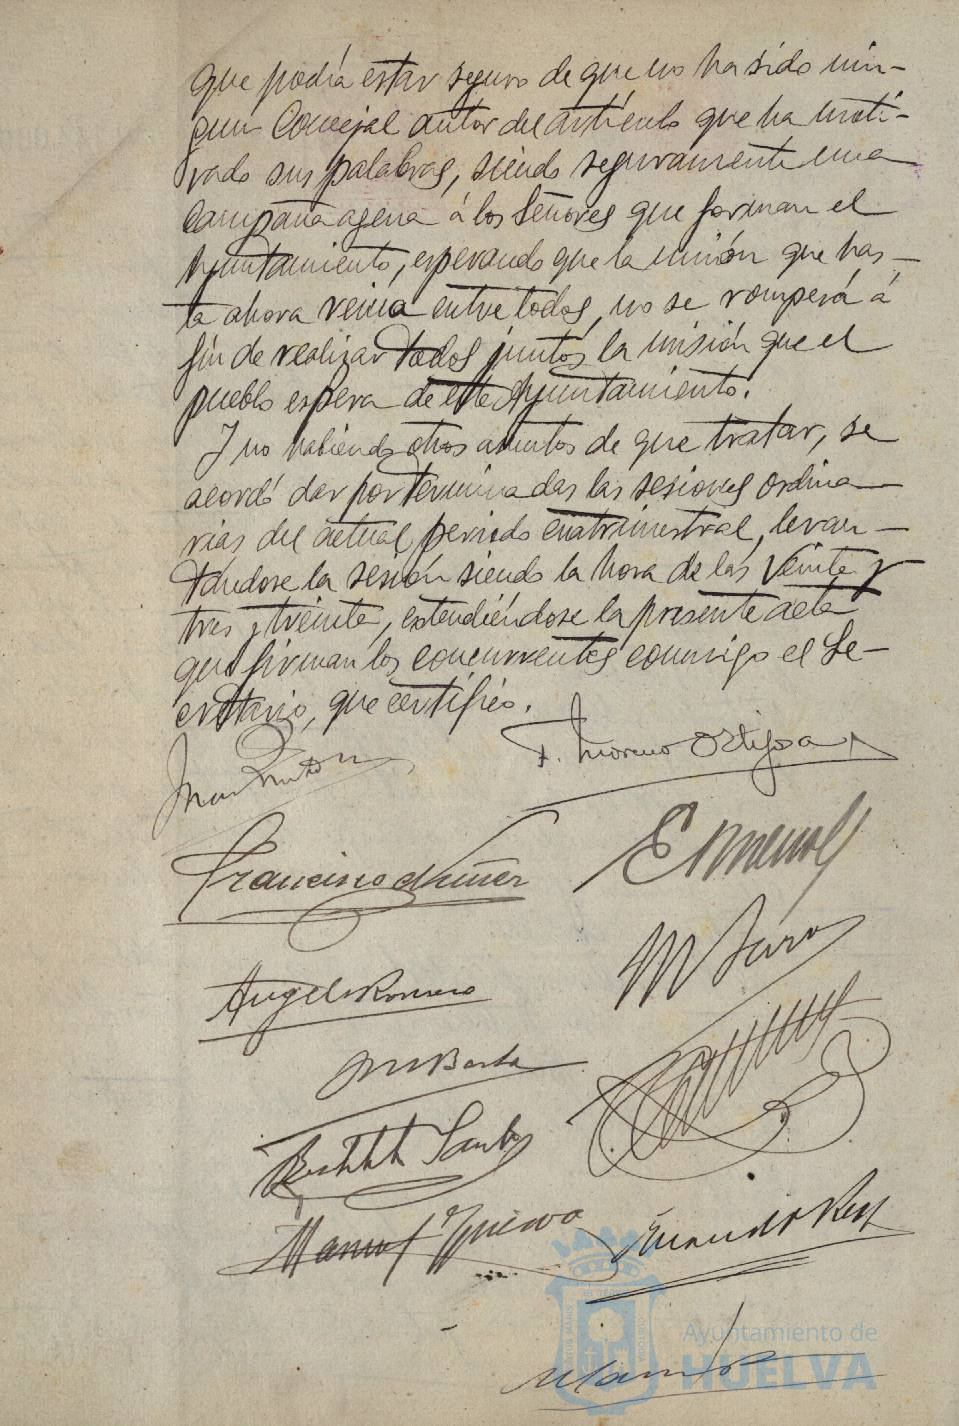 que podía estar seguro de que no ha sido nin-
gún Concejal autor del artículo que ha moti-
vado sus palabras, siendo seguramente una
campaña agena á los Señores que forman el
Ayuntamiento, esperando que la unión que has-
ta ahora reina entre todos, no se romperá á
fin de realizar todos juntos la misión que el
pueblo espera de este Ayuntamiento.
Y no habiendo otros asuntos de que tratar, se
acordó dar por terminadas las sesiones ordina-
rias del actual periodo cuatrimestral, levan-
tándose la sesión siendo la hora de las veinte y
tres y treinta, extendiéndose la presente acta
que firman los concurrentes conmigo el Se-
cretario, que certifico.
F. Moreno Ortega
Francisco Núñez
Angel Romero
M Barba
Ayuntamiento de
HUELVA